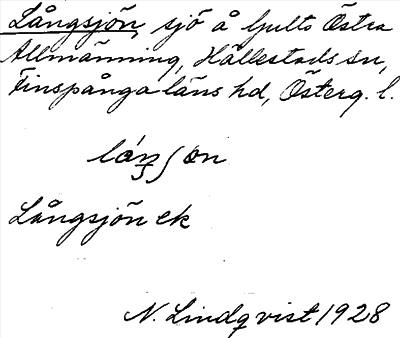 Långsjön, sjö å Hults Östra
Allmänning, Hällestads sn,
Finspånga läns hd, Österg. l.
Långsjön ek
N. Lindqvist 1928